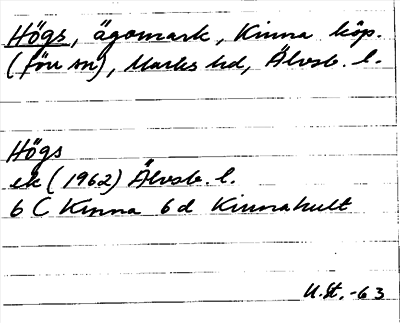 Högs, ägomark, Kinna köp.
(förr sn), Marks hd, Älvsb. l.
Högs
ek (1962) Älvsb. l.
6 C Kinna 6d Kinnahult
U.St. -63